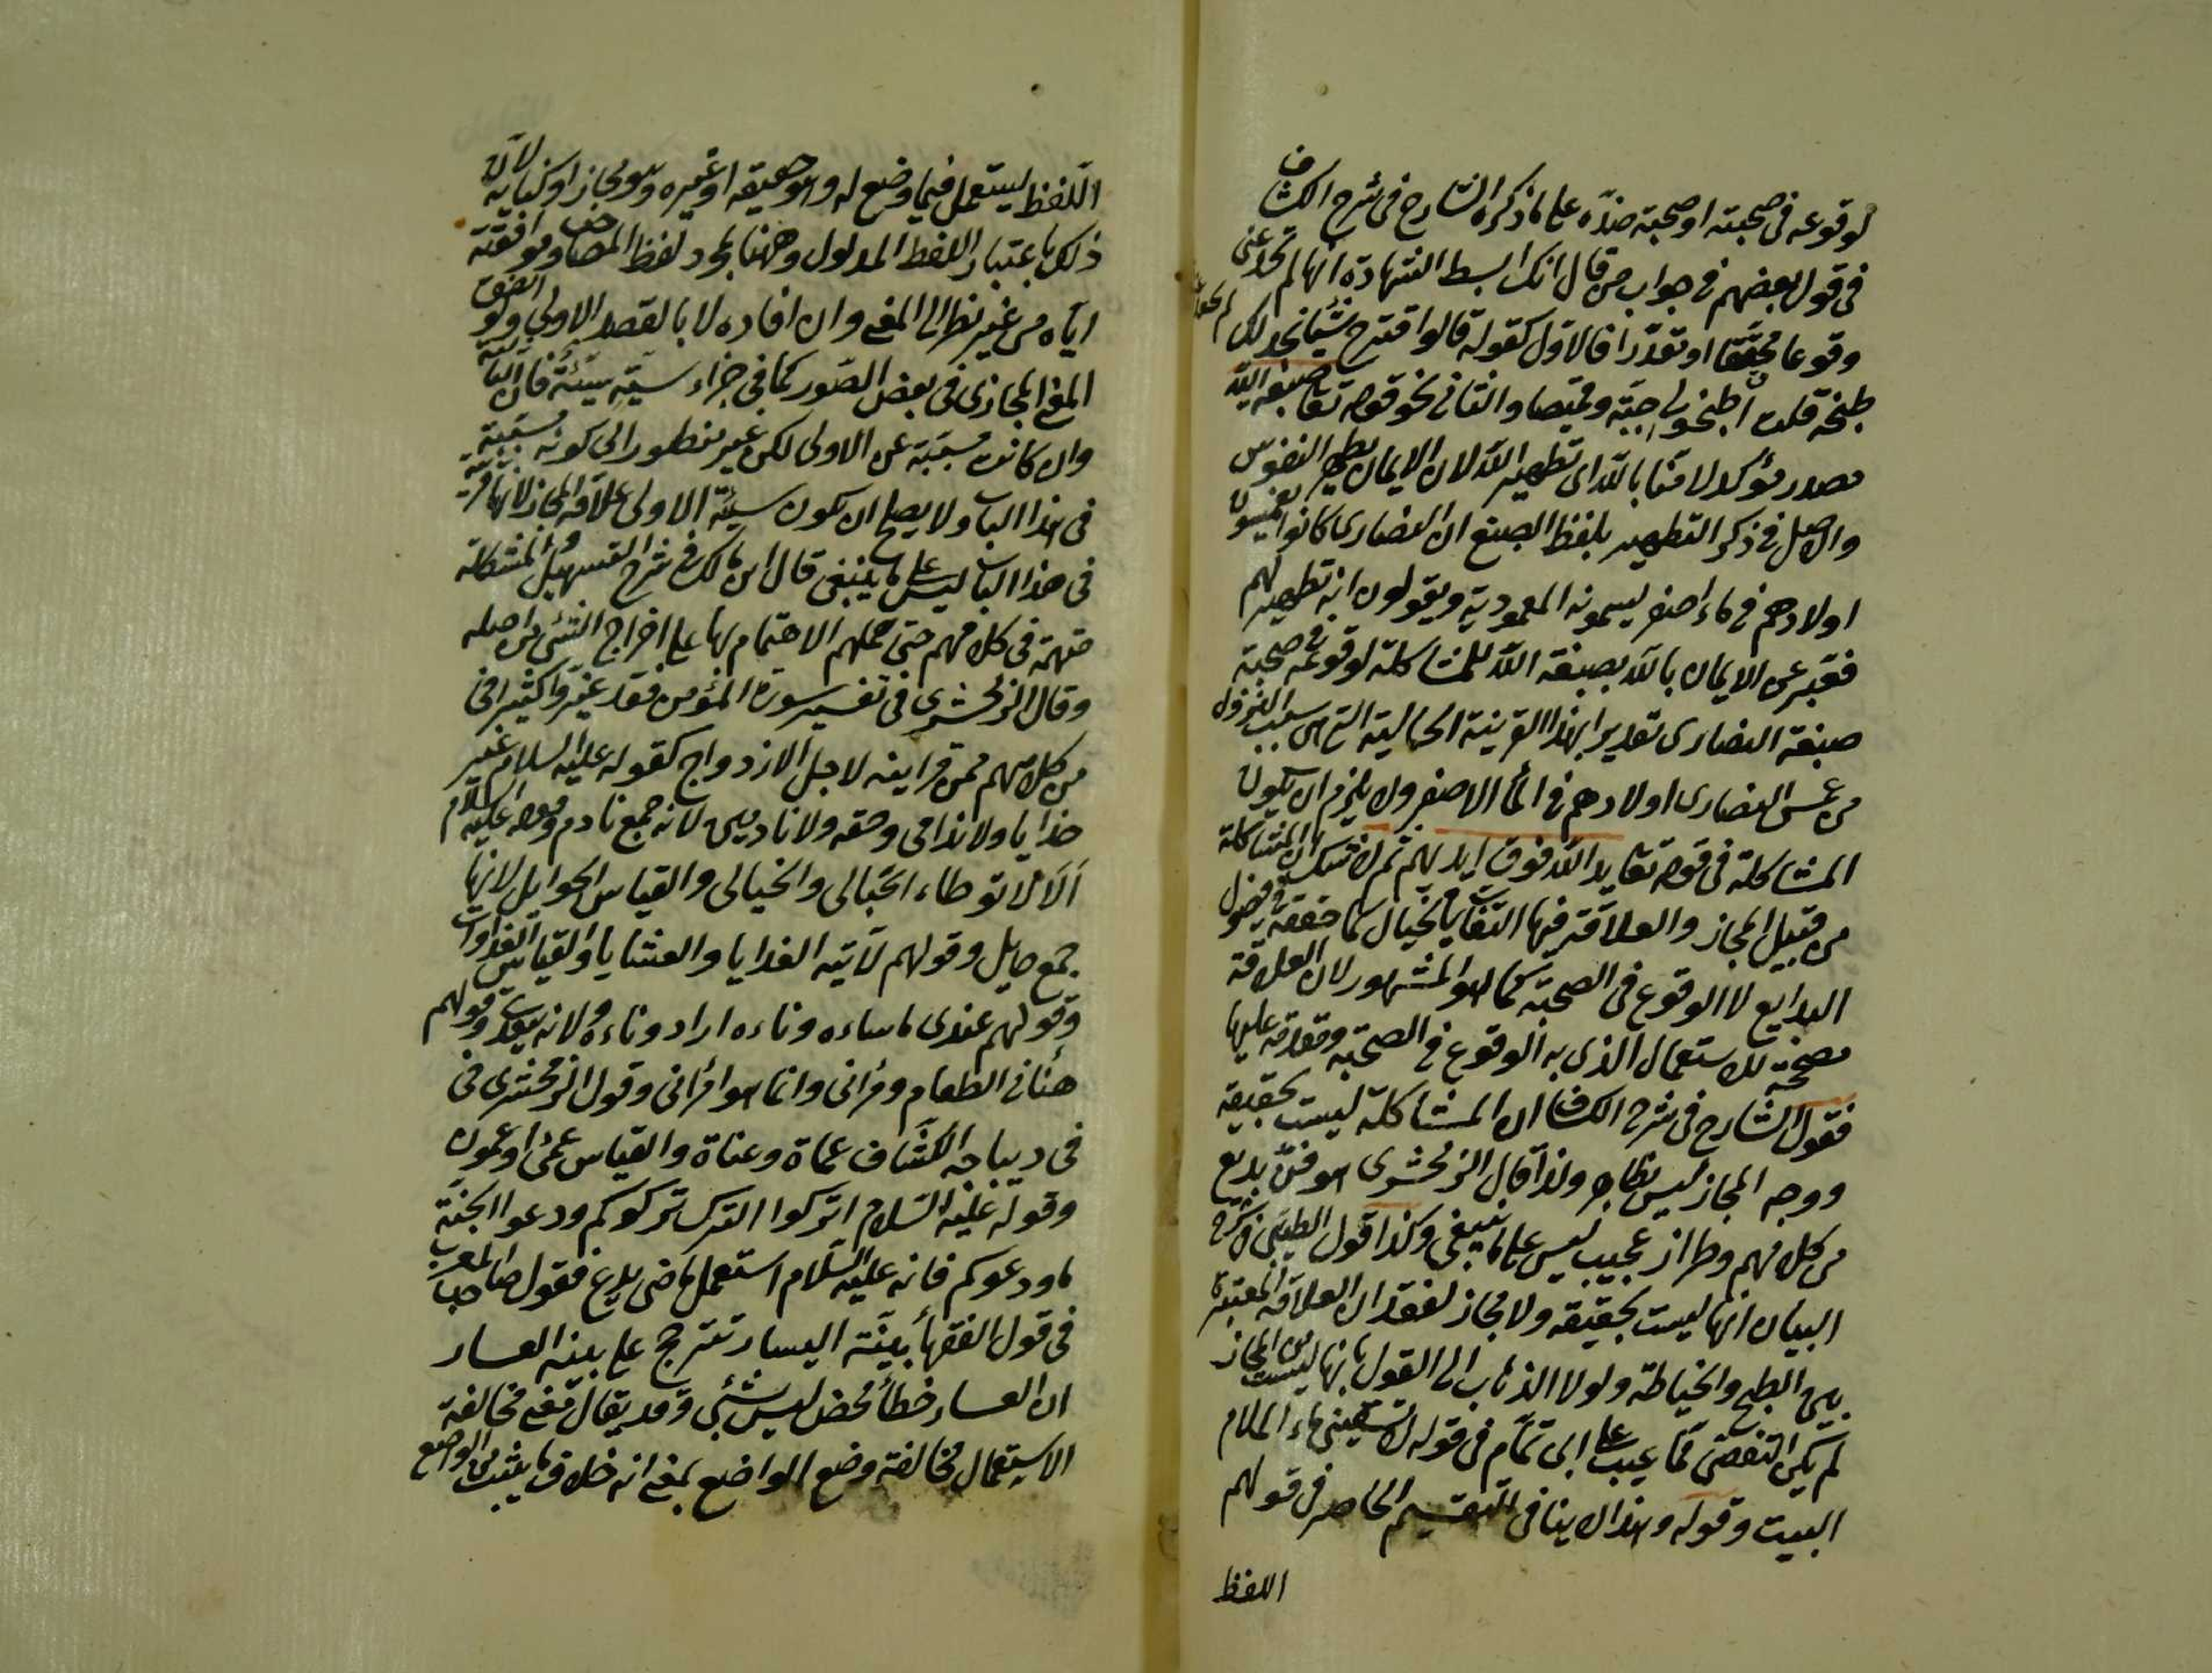 لوقوعه في صحبته او صحبة ضده على ما ذكره الشارح في شرح الكشاف
في قول بعضهم في جواب من قال انك لبسط الشهادة انها لم تجعد عني
وقوعا محققا او تقديرا فالاول كقوله قالوا اقترح شيئا نجد لك
طبخه قلت اطبخوا لي جبة وقميصا والثاني نحو قوله تعا صبغة الله
مصدر مؤكد لآمنا بالله اي تطهير الله لان الايمان يطهر النفوس
والاصل في ذكر التطهير بلفظ الصبغ ان النصارى كانوا يغمسون
اولادهم في ماء اصفر يسمونه المعمودية ويقولون انه تطهير لهم
فعبر عن الايمان بالله بصبغة الله للمشاكلة لوقوعه في صحبة
صبغة النصارى تقديرا بهذا القرينة الحالية التي هي سبب النزول
من غمس النصارى اولادهم في الماء الاصفر ولا يلزم ان يكون
المشاكلة في قوله تعا يد الله فوق ايديهم ثم لا شك ان المشاكلة
من قبيل المجاز والعلاقة فيها التقارب في الخيال كما حققه في فصول
البدايع لا الوقوع في الصحبة كما هو المشهور لان العلاقة
مصححة للاستعمال الذي به الوقوع في الصحبة ومقدمة عليها
فقول الشارح في شرح الكشاف ان المشاكلة ليست بحقيقة
ووجه المجاز ليس بظاهر ولذا قال الزمخشري هو فن بديع
من كلامهم وطراز عجيب ليس على ما ينبغي وكذا قول الطيبي في شرح
البيان انها ليست بحقيقة ولا مجاز لفقدان العلاقة المعتبرة
بين الطبخ والخياطة ولولا الذهاب الى القول بانها ليست من المجاز
لم يكن التفصي عما عيب على ابي تمام في قوله لا تسقيني ماء الملام
البيت وقوله وهذا لا ينافي التقسيم الحاصر في قولهم
اللفظ
اللفظ ليستعمل فيما وضع له وهو حقيقة او غيره وهو مجاز او كناية لان
ذلك باعتبار اللفظ المدلول وههنا لمجرد لفظ المصاحب وموافقته
اياه من غير نظر الى المعنى وان افاده لا بالقصد الاولي ولو اتفق
المعنى المجازي في بعض الصور كما في جزاء سيئة سيئة فان الثانية
وان كانت مسببة عن الاولى لكن غير منظور الى كونه مسببة
في هذا الباب ولا يصح ان يكون سيئة الاولى علاقة المجاز لانها قرينة
في هذا الباب ليس على ما ينبغي قال ابن مالك في شرح التسهيل المشاكلة
متهمة في كلامهم حتى حملهم الاهتمام بها على اخراج الشئ من اصله
وقال الزمخشري في تفسير سورة المؤمن فقد غيروا كثيرا في
من كلامهم من قراينه لاجل الازدواج كقوله عليه السلام غير
خذايا ولا ندامى وحقه ولا نادمين لانه جمع نادم وقوله عليه السلام
ألا لا توطاء الحبالى والخيالى والقياس الحوايل لانها
جمع حايل وقولهم لآتيه الغدايا والعشايا والقياس الغداوات
وقولهم عندي ما ساءه وناءه اراد وناءه لانه بمعنى وقولهم
هنأني الطعام ومرأني وانما هو امرأني وقول الزمخشري في
في ديباجة الكشاف عماة وعناة والقياس عمى او عمون
وقوله عليه السلام اتركوا الترك تركوكم ودعوا الحبشة
ما ودعوكم فانه عليه السلام استعمل ماضي يدع فقول صاحب المغرب
في قول الفقهأ بينة اليسار تترجح على بينة العسار
ان العسار خطأ محض ليس بشئ وقد يقال معنى مخالفة
الاستعمال مخالفة وضع الواضع بمعنى انه خلاف ما يثبت من الواضع